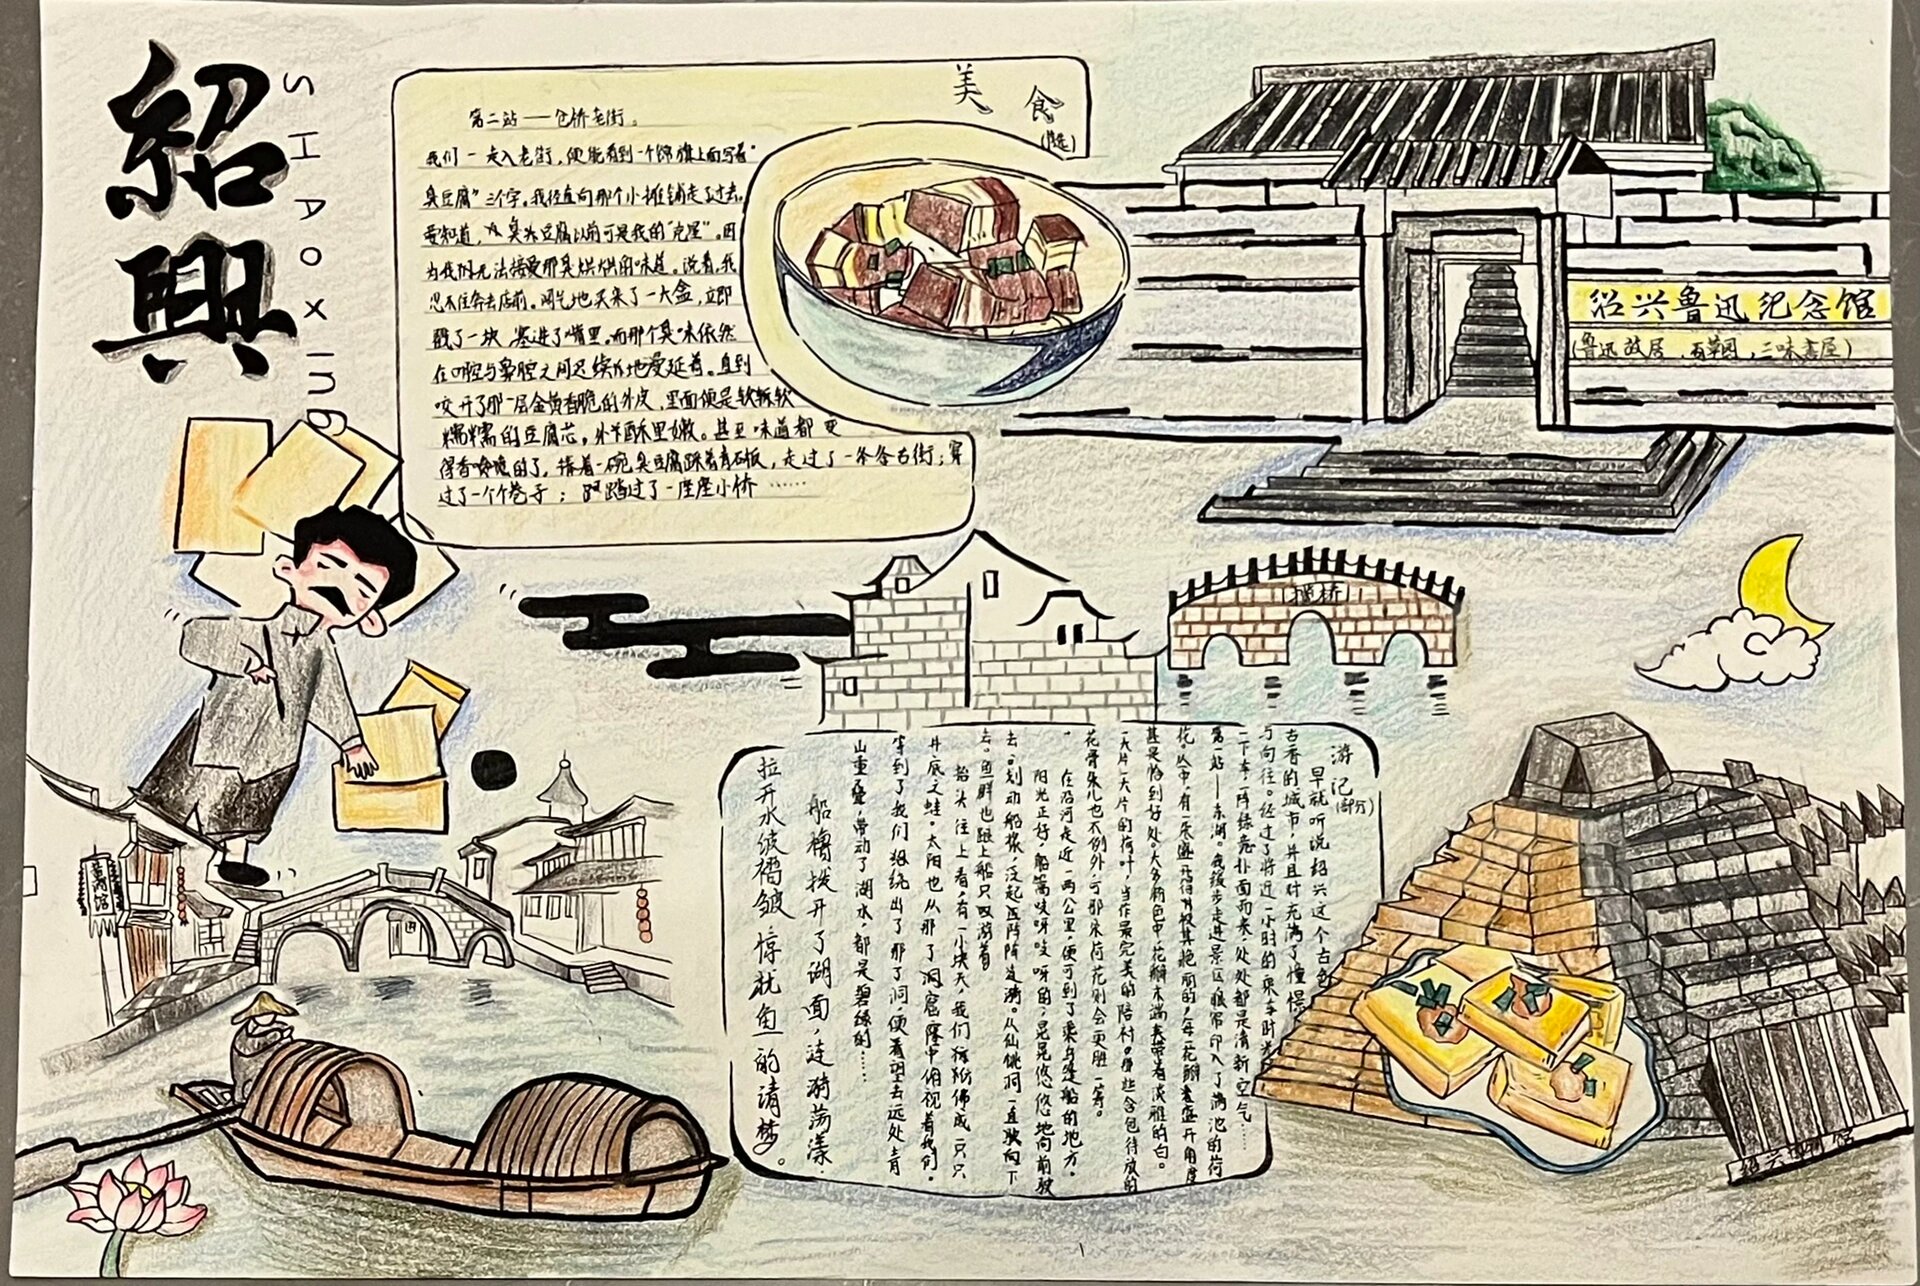 紹興
SHAOXING
美食
(精选)
第二站——仓桥老街。
我们一走入老街,便能看到一个锦旗上面写着"
臭豆腐"三个字。我径直向那个小摊铺走了过去。
要知道,臭豆腐以前可是我的"克星"。因
为我无法接受那臭烘烘的味道。说着,我
忍不住奔去店前。阔气地买来了一大盒,立即
戳了一块,塞进了嘴里。而那个臭味依然
在口腔与鼻腔之间延续地蔓延着。直到
咬开了那一层金黄香脆的外皮,里面便是软软
糯糯的豆腐芯。外酥里嫩。甚至味道都变
得香喷喷的了。捧着一碗臭豆腐踩着青石板,走过了一条条古街;穿
过了一个个巷子;踏过了一座座小桥……
绍兴鲁迅纪念馆
(鲁迅故居、百草园、三味書屋)
游记
(部分)
早就听说绍兴这个古色
古香的城市,并且对充满了憧憬
与向往。经过了将近一小时的乘车时光
一下车,一阵绿意扑面而来,处处都是清新空气……
第一站——东湖。我缓步走进景区,眼帘印入了满池的荷
花。丛中,有一朵盛开得极其艳丽的,每一花瓣盛开角度
甚是恰到好处。大多粉色中,花瓣末端泰带着淡雅的白。
一大片一大片的荷叶,当作最完美的陪衬。那些含苞待放的
花骨朵儿也不例外,可那朵荷花则会更胜一筹。
在沿河走近一两公里,便可到了乘乌篷船的地方。
阳光正好,船篙吱呀吱呀的,晃晃悠悠地向前驶
去。划动船桨,泛起阵阵涟漪。从仙桃洞一直驶向下
去。鱼群也跟上船只嬉游着。
抬头往上看,有一小块天,我们仿佛成一只只
井底之蛙。太阳也从那了洞窟窿中俯视着我们。
等到了我们绕出了那了洞,便看望去远处青
山重叠,带动了湖水,都是碧绿的……
船橹拨开了湖面,涟漪荡漾.
拉开水纹褶皱 惊扰鱼的清梦。
绍兴博物馆